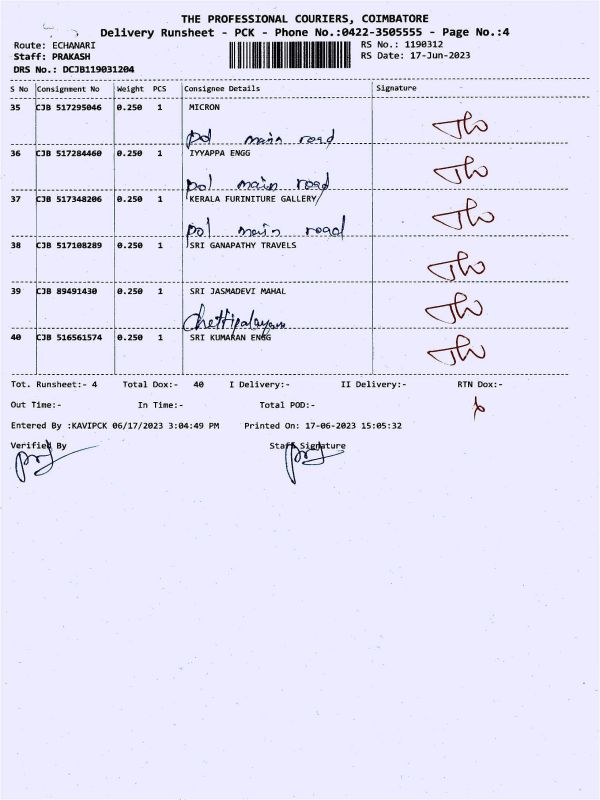 THE PROFESSIONAL COURIERS, COIMBATORE
Delivery Runsheet - PCK - Phone No.:0422-3505555 - Page No.:4
Route: ECHANARI RS No.: 1190312
Staff: PRAKASH RS Date: 17-Jun-2023
DRS No.: DCJB119031204
S No Consignment No Weight PCS Consignee Details Signature
35 CJB 517295046 0.250 1 MICRON
pol main road
36 CJB 517284460 0.250 1 IYYAPPA ENGG
pol main road
37 CJB 517348206 0.250 1 KERALA FURINITURE GALLERY
pol main road
38 CJB 517108289 0.250 1 SRI GANAPATHY TRAVELS
39 CJB 89491430 0.250 1 SRI JASMADEVI MAHAL
Chettipalayam
40 CJB 516561574 0.250 1 SRI KUMARAN ENGG
Tot. Runsheet:- 4 Total Dox:- 40 I Delivery:- II Delivery:- RTN Dox:-
Out Time:- In Time:- Total POD:-
Entered By :KAVIPCK 06/17/2023 3:04:49 PM Printed On: 17-06-2023 15:05:32
Verified By Staff Signature